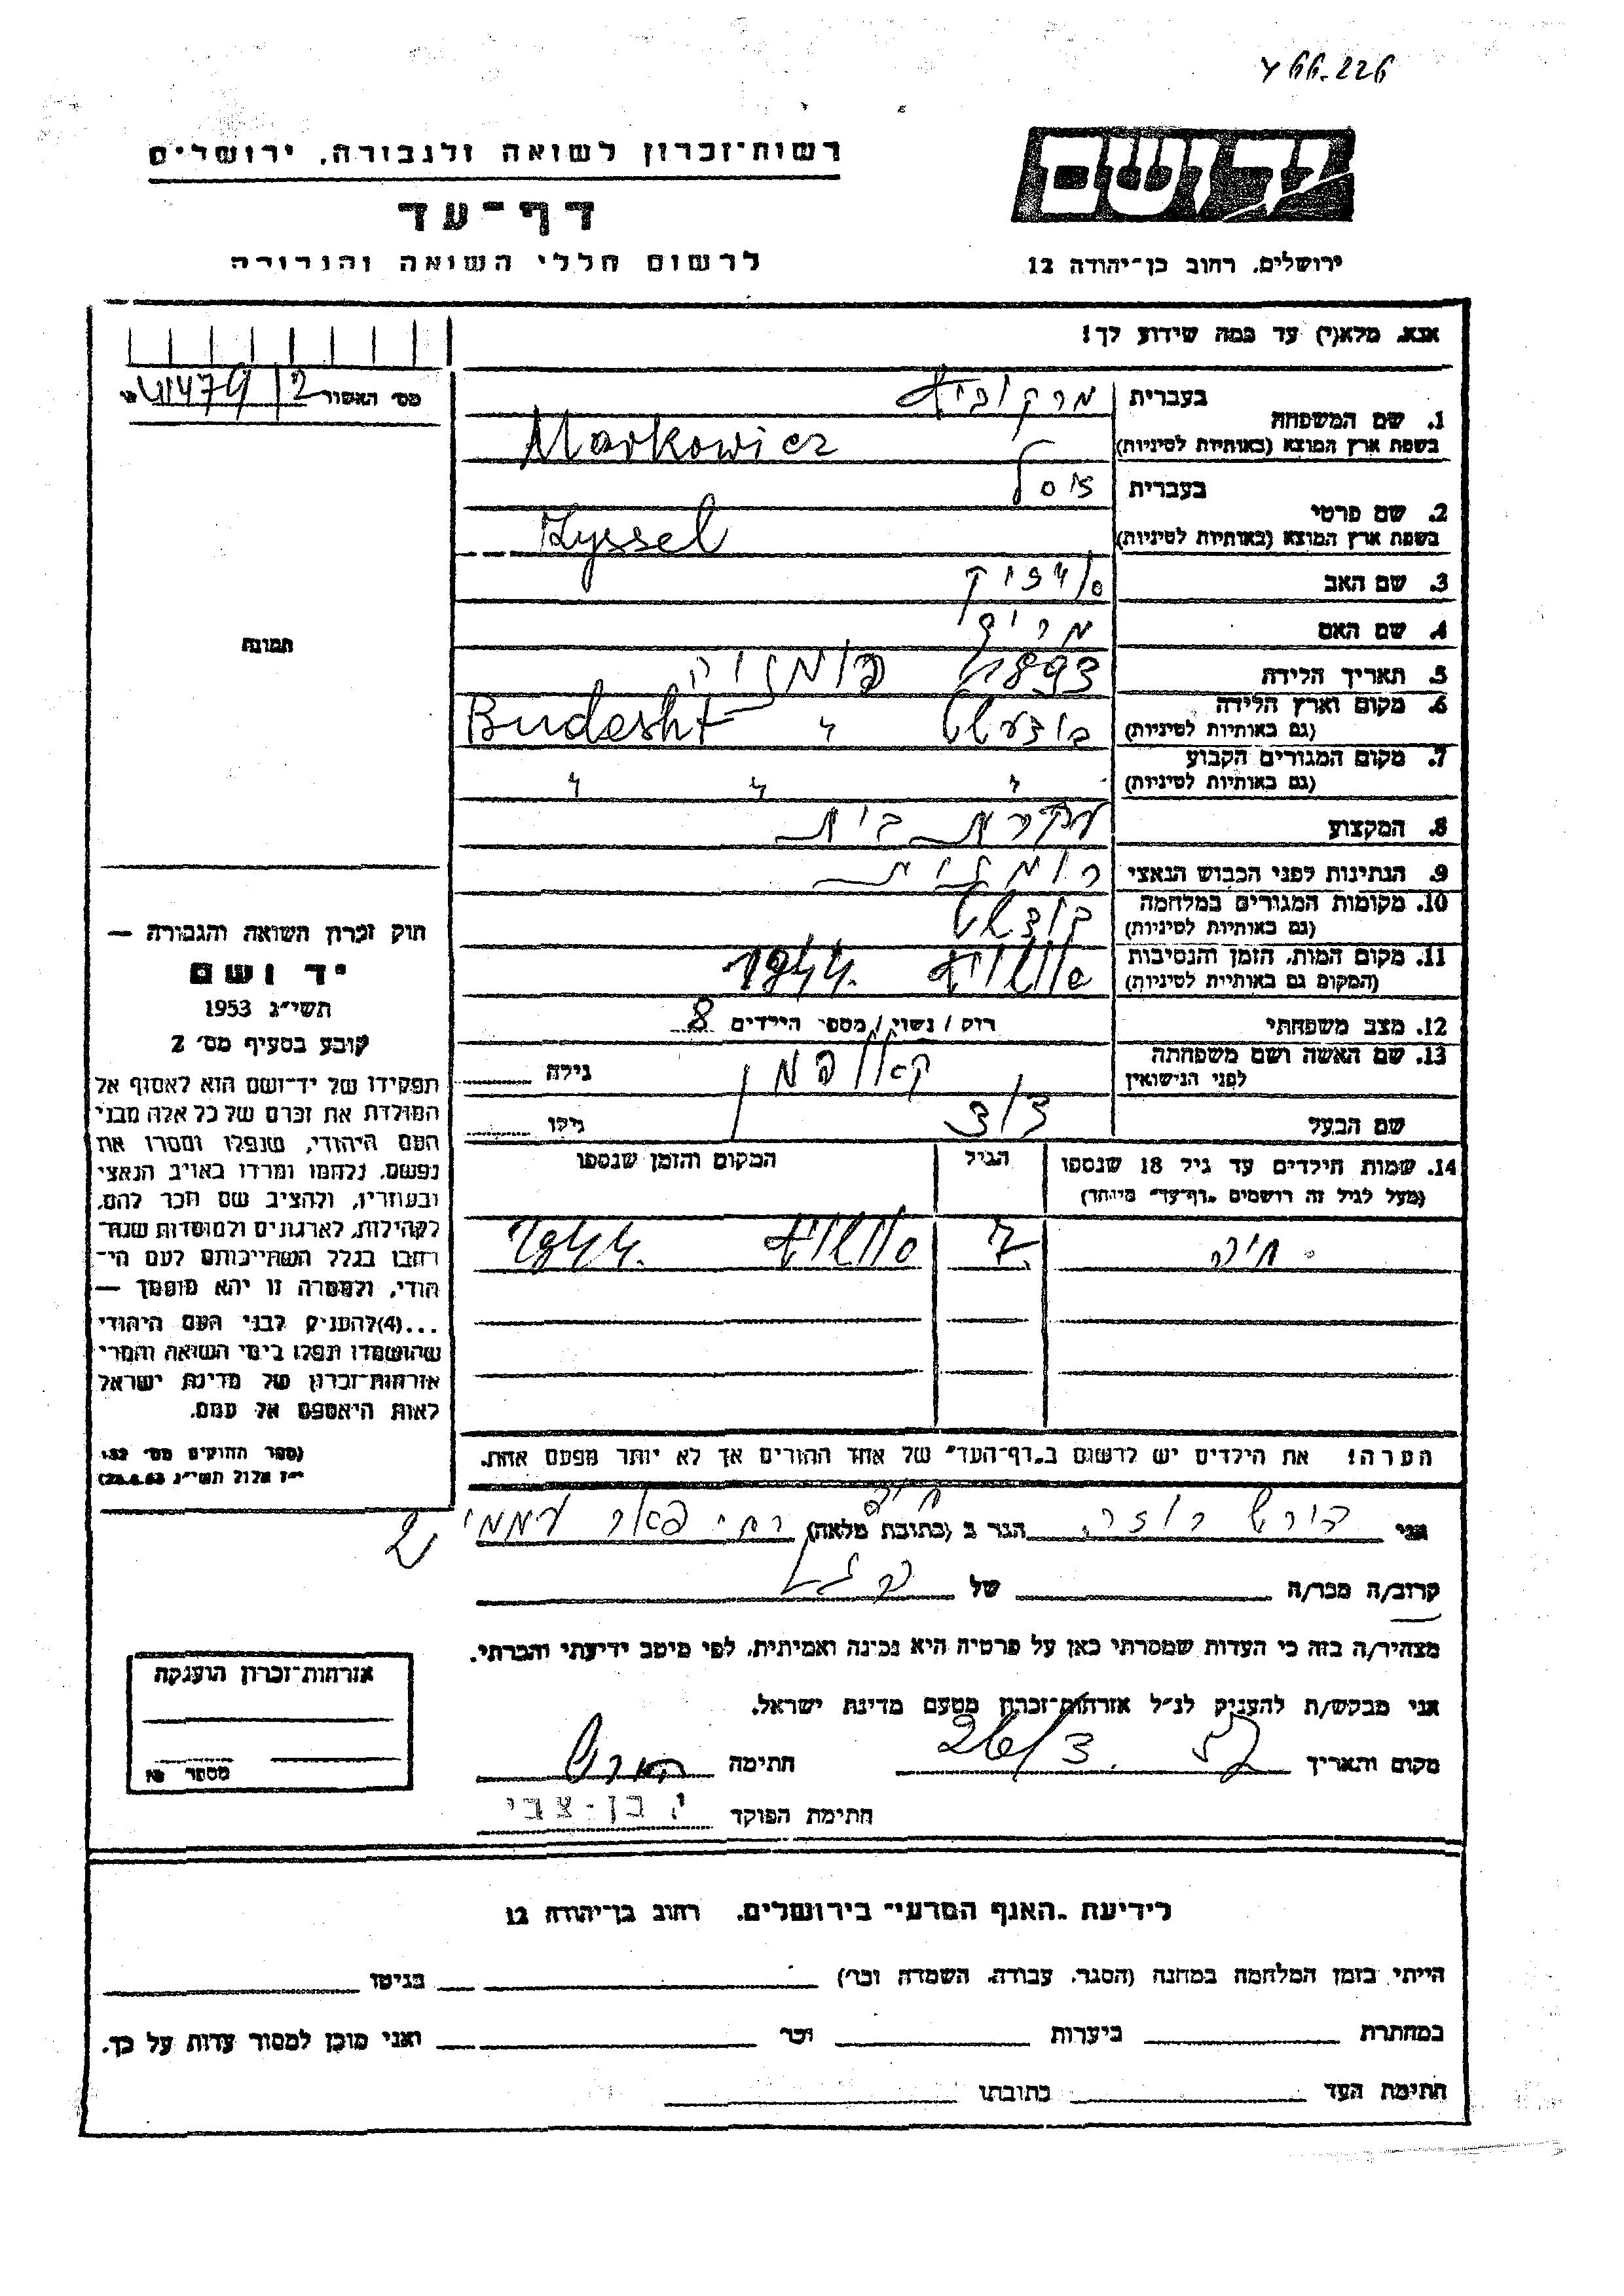 466.226
יד ושם
ירושלים, רחוב בן־יהודה 12
רשות־זכרון לשואה ולגבורה, ירושלים
דף־עד
לרשום חללי השואה והגבורה
אנא, מלא(י) עד כמה שידוע לך!
1. שם המשפחה
בעברית מרקוביץ
בשפת ארץ המוצא (באותיות לטיניות) Markowicz
2. שם פרטי
בעברית זוסל
בשפת ארץ המוצא (באותיות לטיניות) Zyssel
3. שם האב
4. שם האם
5. תאריך הלידה 1893
6. מקום וארץ הלידה
(גם באותיות לטיניות) Budesht
7. מקום המגורים הקבוע
(גם באותיות לטיניות) " " "
8. המקצוע עקרת בית
9. הנתינות לפני הכבוש הנאצי רומנית
10. מקומות המגורים במלחמה
(גם באותיות לטיניות)
11. מקום המות, הזמן והנסיבות
(המקום גם באותיות לטיניות) אושויץ 1944.
12. מצב משפחתי רוק / נשוי / מספר הילדים 8
13. שם האשה ושם משפחתה
לפני הנישואין גילה
שם הבעל גילו
14. שמות הילדים עד גיל 18 שנספו
(מעל לגיל זה רושמים „דף־עד" מיוחד)
הגיל
המקום והזמן שנספו
חיה 7 אושויץ 1944.
הערה! את הילדים יש לרשום ב„דף־העד" של אחד ההורים אך לא יותר מפעם אחת.
מס׳ האשור
תמונה
חוק זכרון השואה והגבורה —
יד ושם
תשי״ג 1953
קובע בסעיף מס׳ 2
תפקידו של יד־ושם הוא לאסוף אל
המולדת את זכרם של כל אלה מבני
העם היהודי, שנפלו ומסרו את
נפשם, נלחמו ומרדו באויב הנאצי
ובעוזריו, ולהציב שם וזכר להם,
לקהילות, לארגונים ולמוסדות שנח־
רבו בגלל השתייכותם לעם הי־
הודי, ולמטרה זו יהא מוסמך —
...(4) להעניק לבני העם היהודי
שהושמדו ונפלו בימי השואה והמרי
אזרחות־זכרון של מדינת ישראל
לאות היאספם אל עמם.
(ספר החוקים מס׳ 132,
י״ז אלול תשי״ג 28.8.53)
אני
הגר ב (כתובת מלאה)
קרוב/ה מכר/ה של
מצהיר/ה בזה כי העדות שמסרתי כאן על פרטיה היא נכונה ואמיתית, לפי מיטב ידיעתי והכרתי.
אני מבקש/ת להעניק לנ״ל אזרחות־זכרון מטעם מדינת ישראל.
מקום ותאריך 26/3 חתימה
חתימת הפוקד י. בן-צבי
אזרחות־זכרון הוענקה
מספר
לידיעת „האגף המדעי" בירושלים, רחוב בן־יהודה 12
הייתי בזמן המלחמה במחנה (הסגר, עבודה, השמדה וכו׳) בגיטו
במחתרת ביערות וכו׳ ואני מוכן למסור עדות על כך.
חתימת העד כתובתו